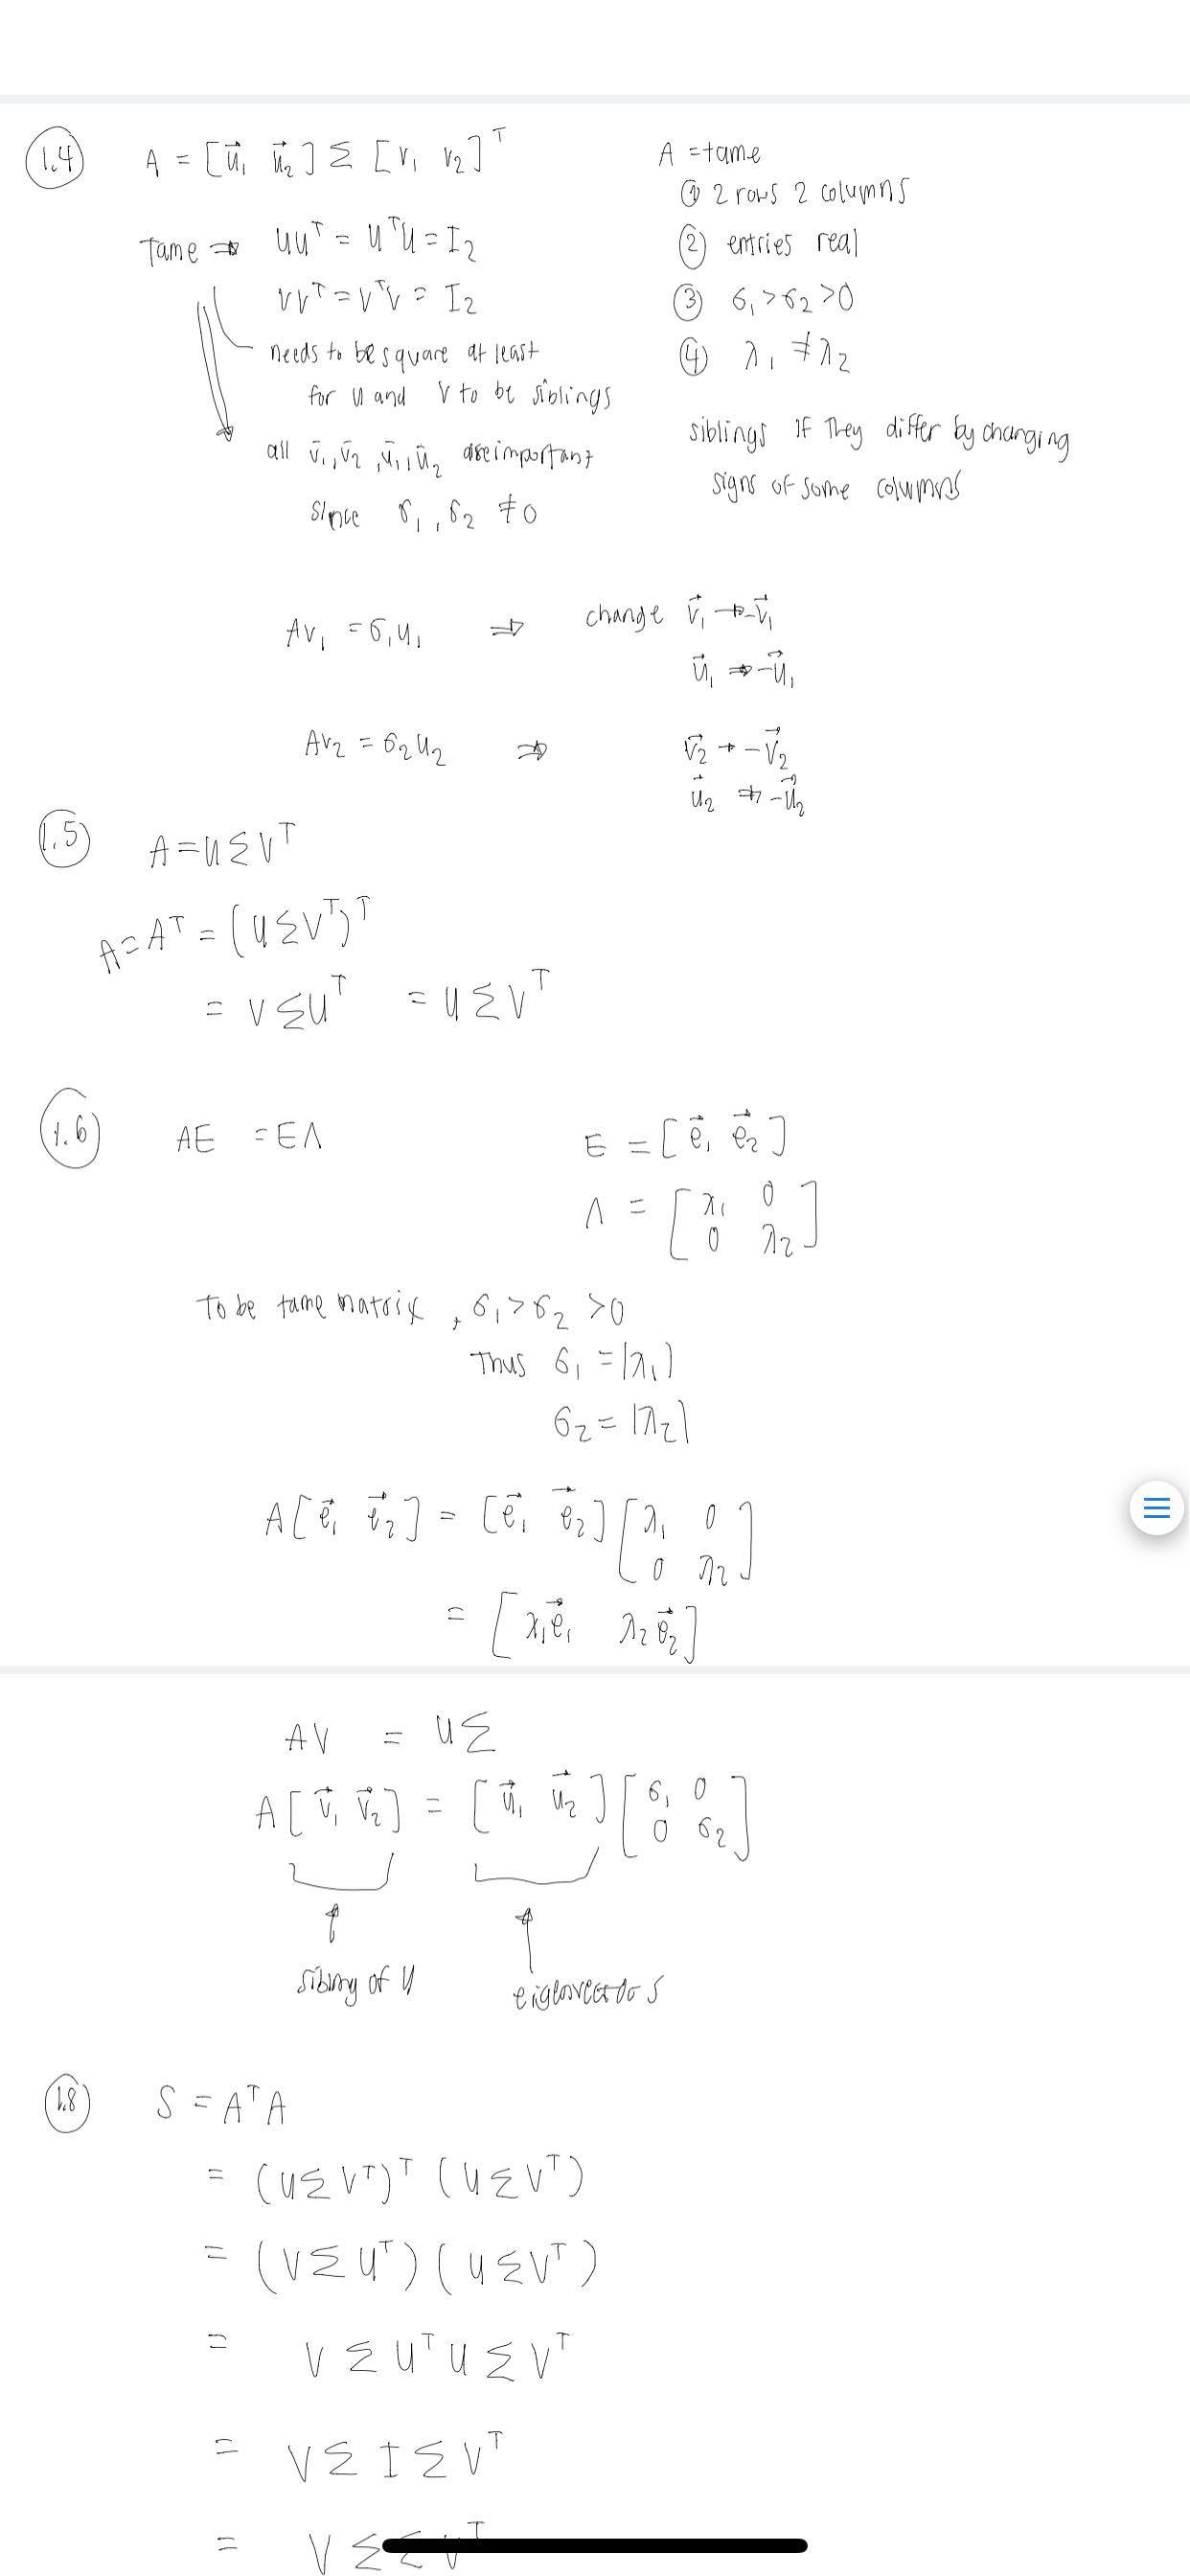 1.4
A = [u⃗₁ u⃗₂] Σ [v₁ v₂]ᵀ
Tame ⇒ UUᵀ = UᵀU = I₂
VVᵀ = VᵀV = I₂
needs to be square at least
for U and V to be siblings
all v⃗₁, v⃗₂, u⃗₁, u⃗₂ are important
since σ₁, σ₂ ≠ 0
A = tame
① 2 rows 2 columns
② entries real
③ σ₁ > σ₂ > 0
④ λ₁ ≠ λ₂
siblings if They differ by changing
signs of some columns
Av₁ = σ₁u₁ ⇒ change v⃗₁ → -v⃗₁
u⃗₁ ⇒ -u⃗₁
Av₂ = σ₂u₂ ⇒ v⃗₂ → -v⃗₂
u⃗₂ ⇒ -u⃗₂
1.5
A = UΣVᵀ
A = Aᵀ = (UΣVᵀ)ᵀ
= VΣUᵀ = UΣVᵀ
1.6
AE = EΛ
E = [e⃗₁ e⃗₂]
Λ = [λ₁ 0
0 λ₂]
To be tame matrix, σ₁ > σ₂ > 0
Thus σ₁ = |λ₁|
σ₂ = |λ₂|
A[e⃗₁ e⃗₂] = [e⃗₁ e⃗₂] [λ₁ 0
0 λ₂]
= [λ₁e⃗₁ λ₂e⃗₂]
AV = UΣ
A[v⃗₁ v⃗₂] = [u⃗₁ u⃗₂] [σ₁ 0
0 σ₂]
↑ ↑
sibling of U eigenvectors
1.8
S = AᵀA
= (UΣVᵀ)ᵀ (UΣVᵀ)
= (VΣUᵀ) (UΣVᵀ)
= VΣUᵀUΣVᵀ
= VΣIΣVᵀ
= VΣΣVᵀ